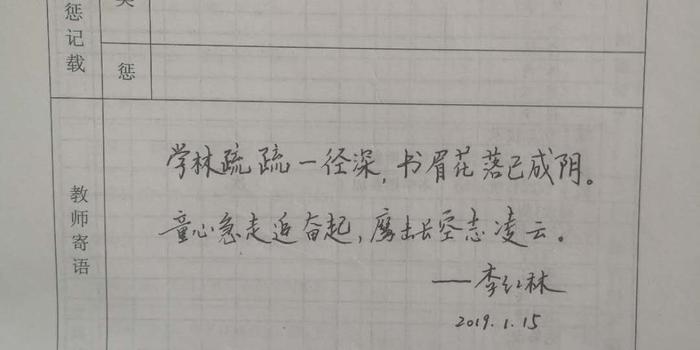 惩记载
惩
教师寄语
学林疏疏一径深，书眉花落已成阴。
童心急走追奋起，鹰击长空志凌云。
——李红林
2019.1.15